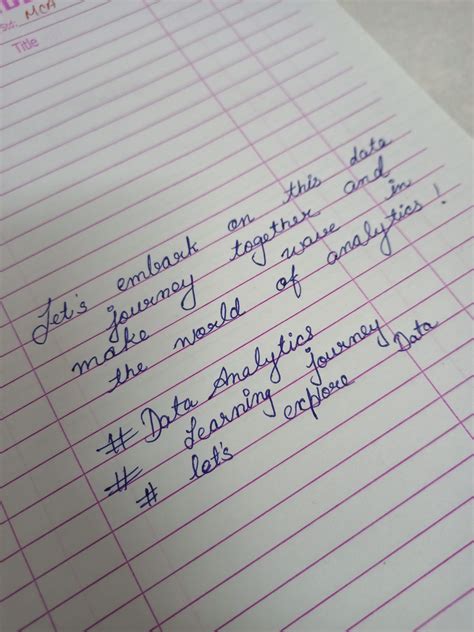 Std: MCA
Title
Let's embark on this data
journey together and
make wave in
the world of analytics!
# Data Analytics
# Learning journey
# let's explore Data